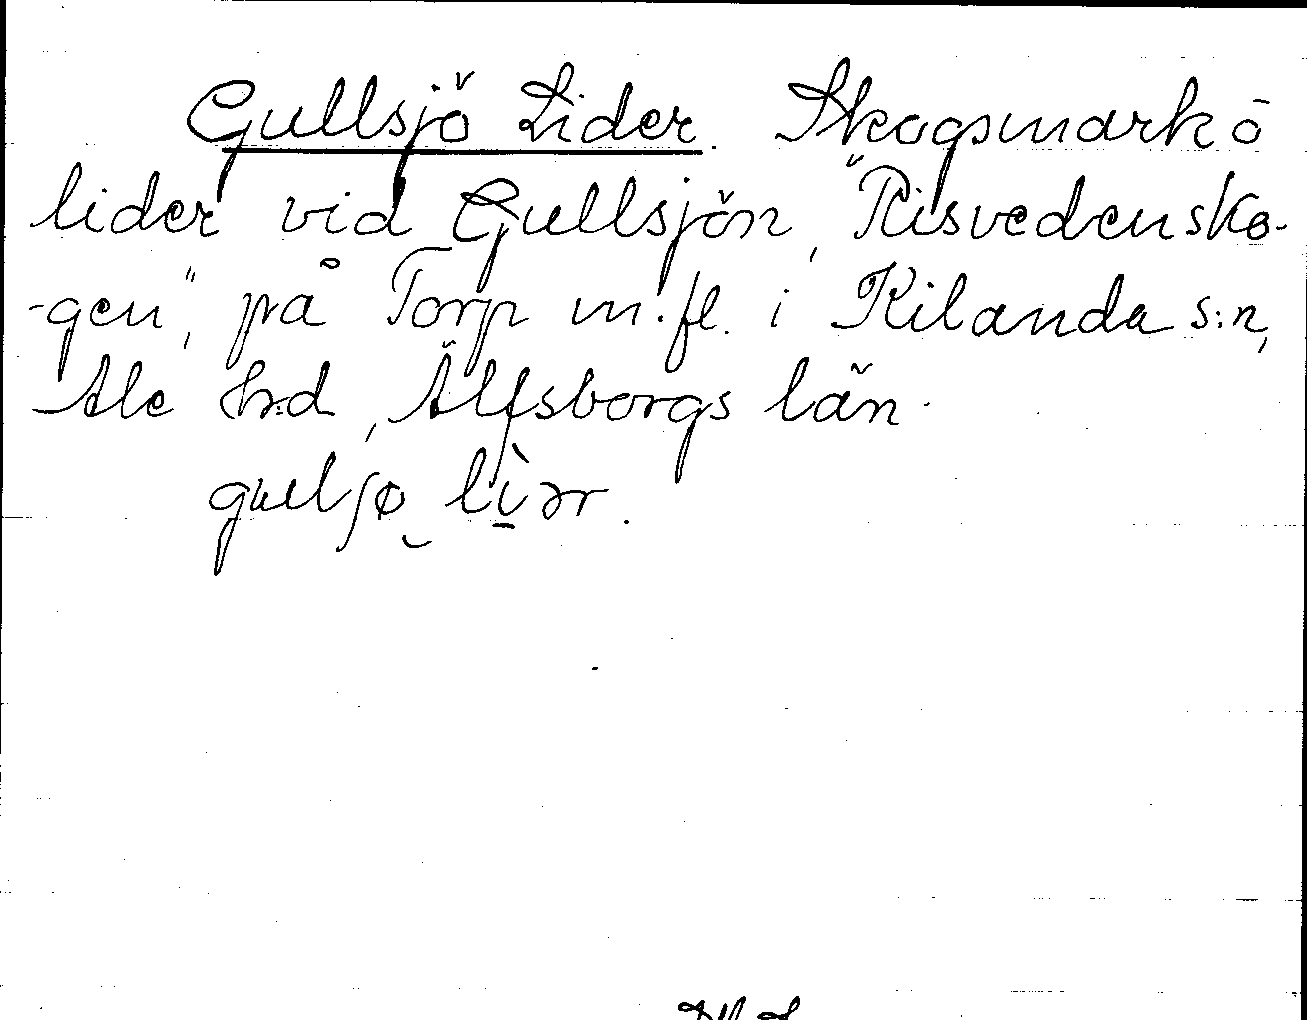 Gullsjö Lider. Skogsmark o
lider vid Gullsjön, "Risvedensko-
-gen", på Torp m.fl. i Kilanda s:n,
Ale h:d, Älfsborgs län.
gulʃø lìər.